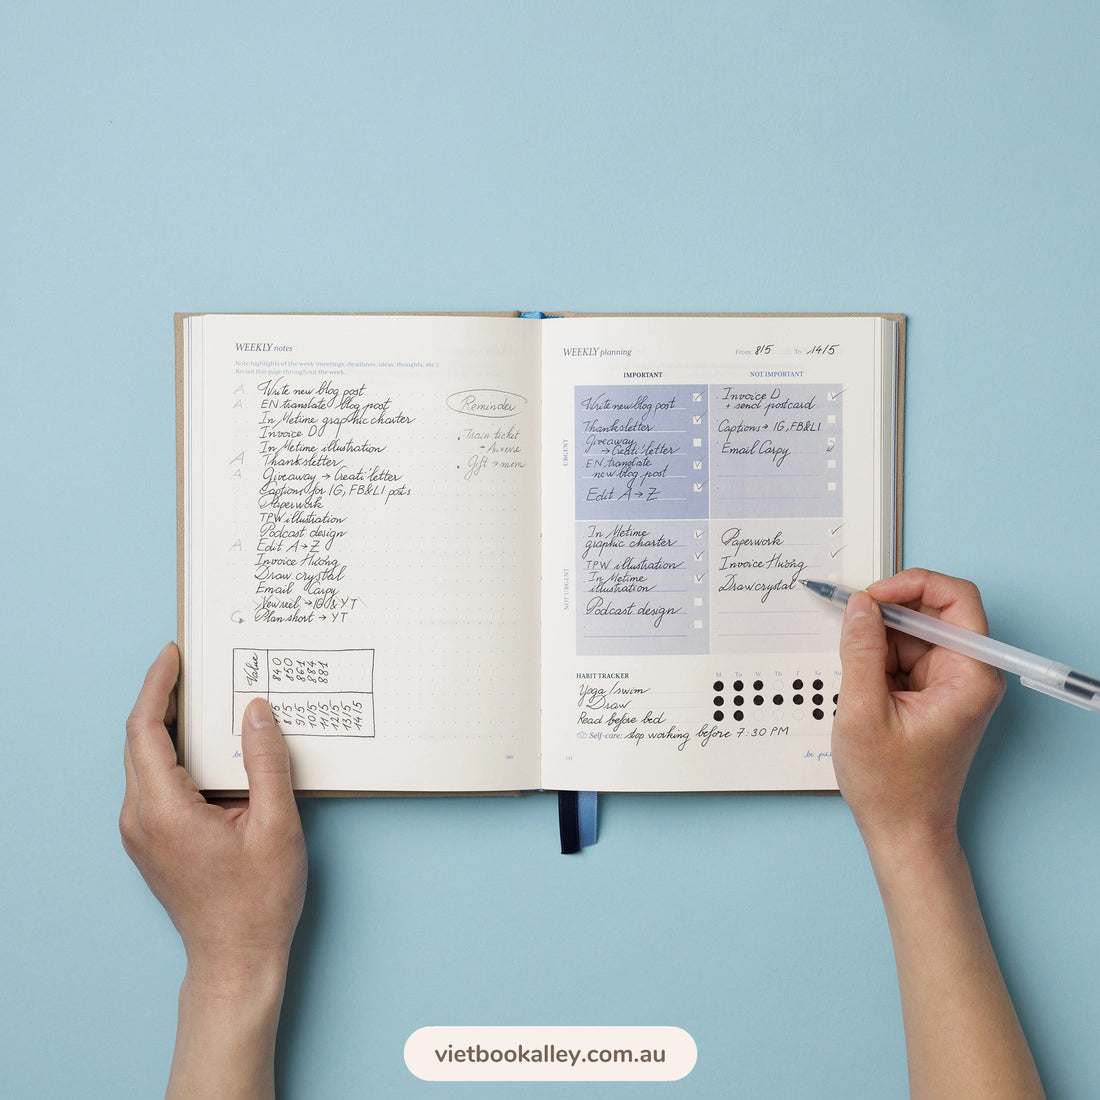 WEEKLY notes
Note highlights of the week (meetings, deadlines, ideas, thoughts, etc.)
Revisit this page throughout the week.
A. Write new blog post
A. EN translate blog post
In Metime graphic charter
Invoice D
In Metime illustration
A Thanksletter
A Giveaway → Creati'letter
Captions for IG, FB&LI posts
Paperwork
TPW illustration
Podcast design
A. Edit A → Z
Invoice Hương
Draw crystal
Email Carpy
New reel → IG & YT
Plan short → YT
Reminder
• Train ticket
- Auxerre
• Gift → mom
Value
840
850
861
884
881
8/5
9/5
10/5
11/5
12/5
13/5
14/5
180
WEEKLY planning
From: 8/5 To: 14/5
IMPORTANT
NOT IMPORTANT
URGENT
Write new blog post
Thanksletter
Giveaway
→ Creati'letter
EN translate
new blog post
Edit A → Z
Invoice D
+ send postcard
Captions → IG, FB&LI
Email Carpy
NOT URGENT
In Metime
graphic charter
TPW illustration
In Metime
illustration
Podcast design
Paperwork
Invoice Hương
Draw crystal
HABIT TRACKER
M Tu W Th F Sa Su
Yoga / swim
Draw
Read before bed
Self-care: stop working before 7:30 PM
181
vietbookalley.com.au